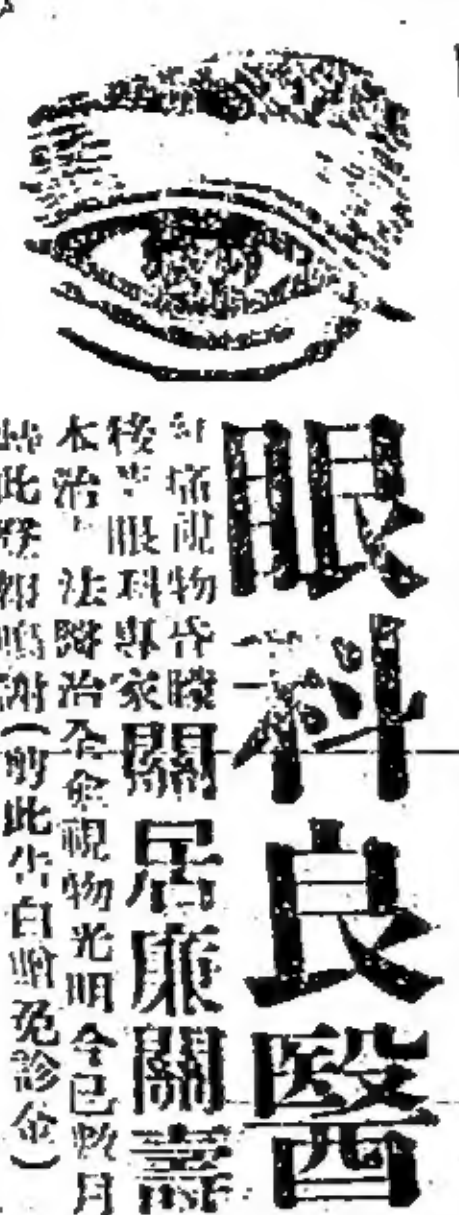 眼科良醫
痛視物昏矇
後眼科專家關居廉關壽
木治法醫治全愈視物光明今已數月
特此登報鳴謝(剪此告白贈免診金)